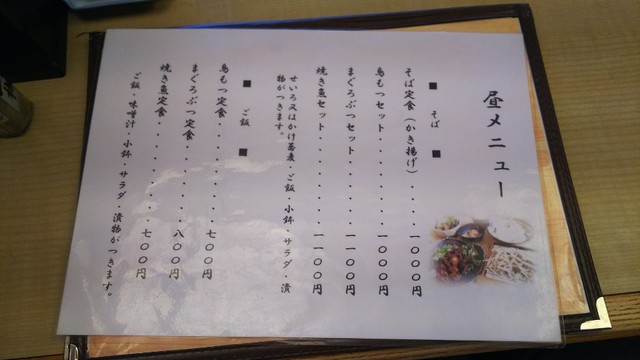 昼メニュー
■ そば ■
そば定食（かき揚げ）・・・・一〇〇〇円
鳥もつセット・・・・・・・・一〇〇〇円
まぐろぶつセット・・・・・・一一〇〇円
焼き魚セット・・・・・・・・一一〇〇円
せいろ又はかけ蕎麦・ご飯・小鉢・サラダ・漬
物がつきます。
■ ご飯 ■
鳥もつ定食・・・・・・七〇〇円
まぐろぶつ定食・・・・八〇〇円
焼き魚定食・・・・・・七〇〇円
ご飯・味噌汁・小鉢・サラダ・漬物がつきます。